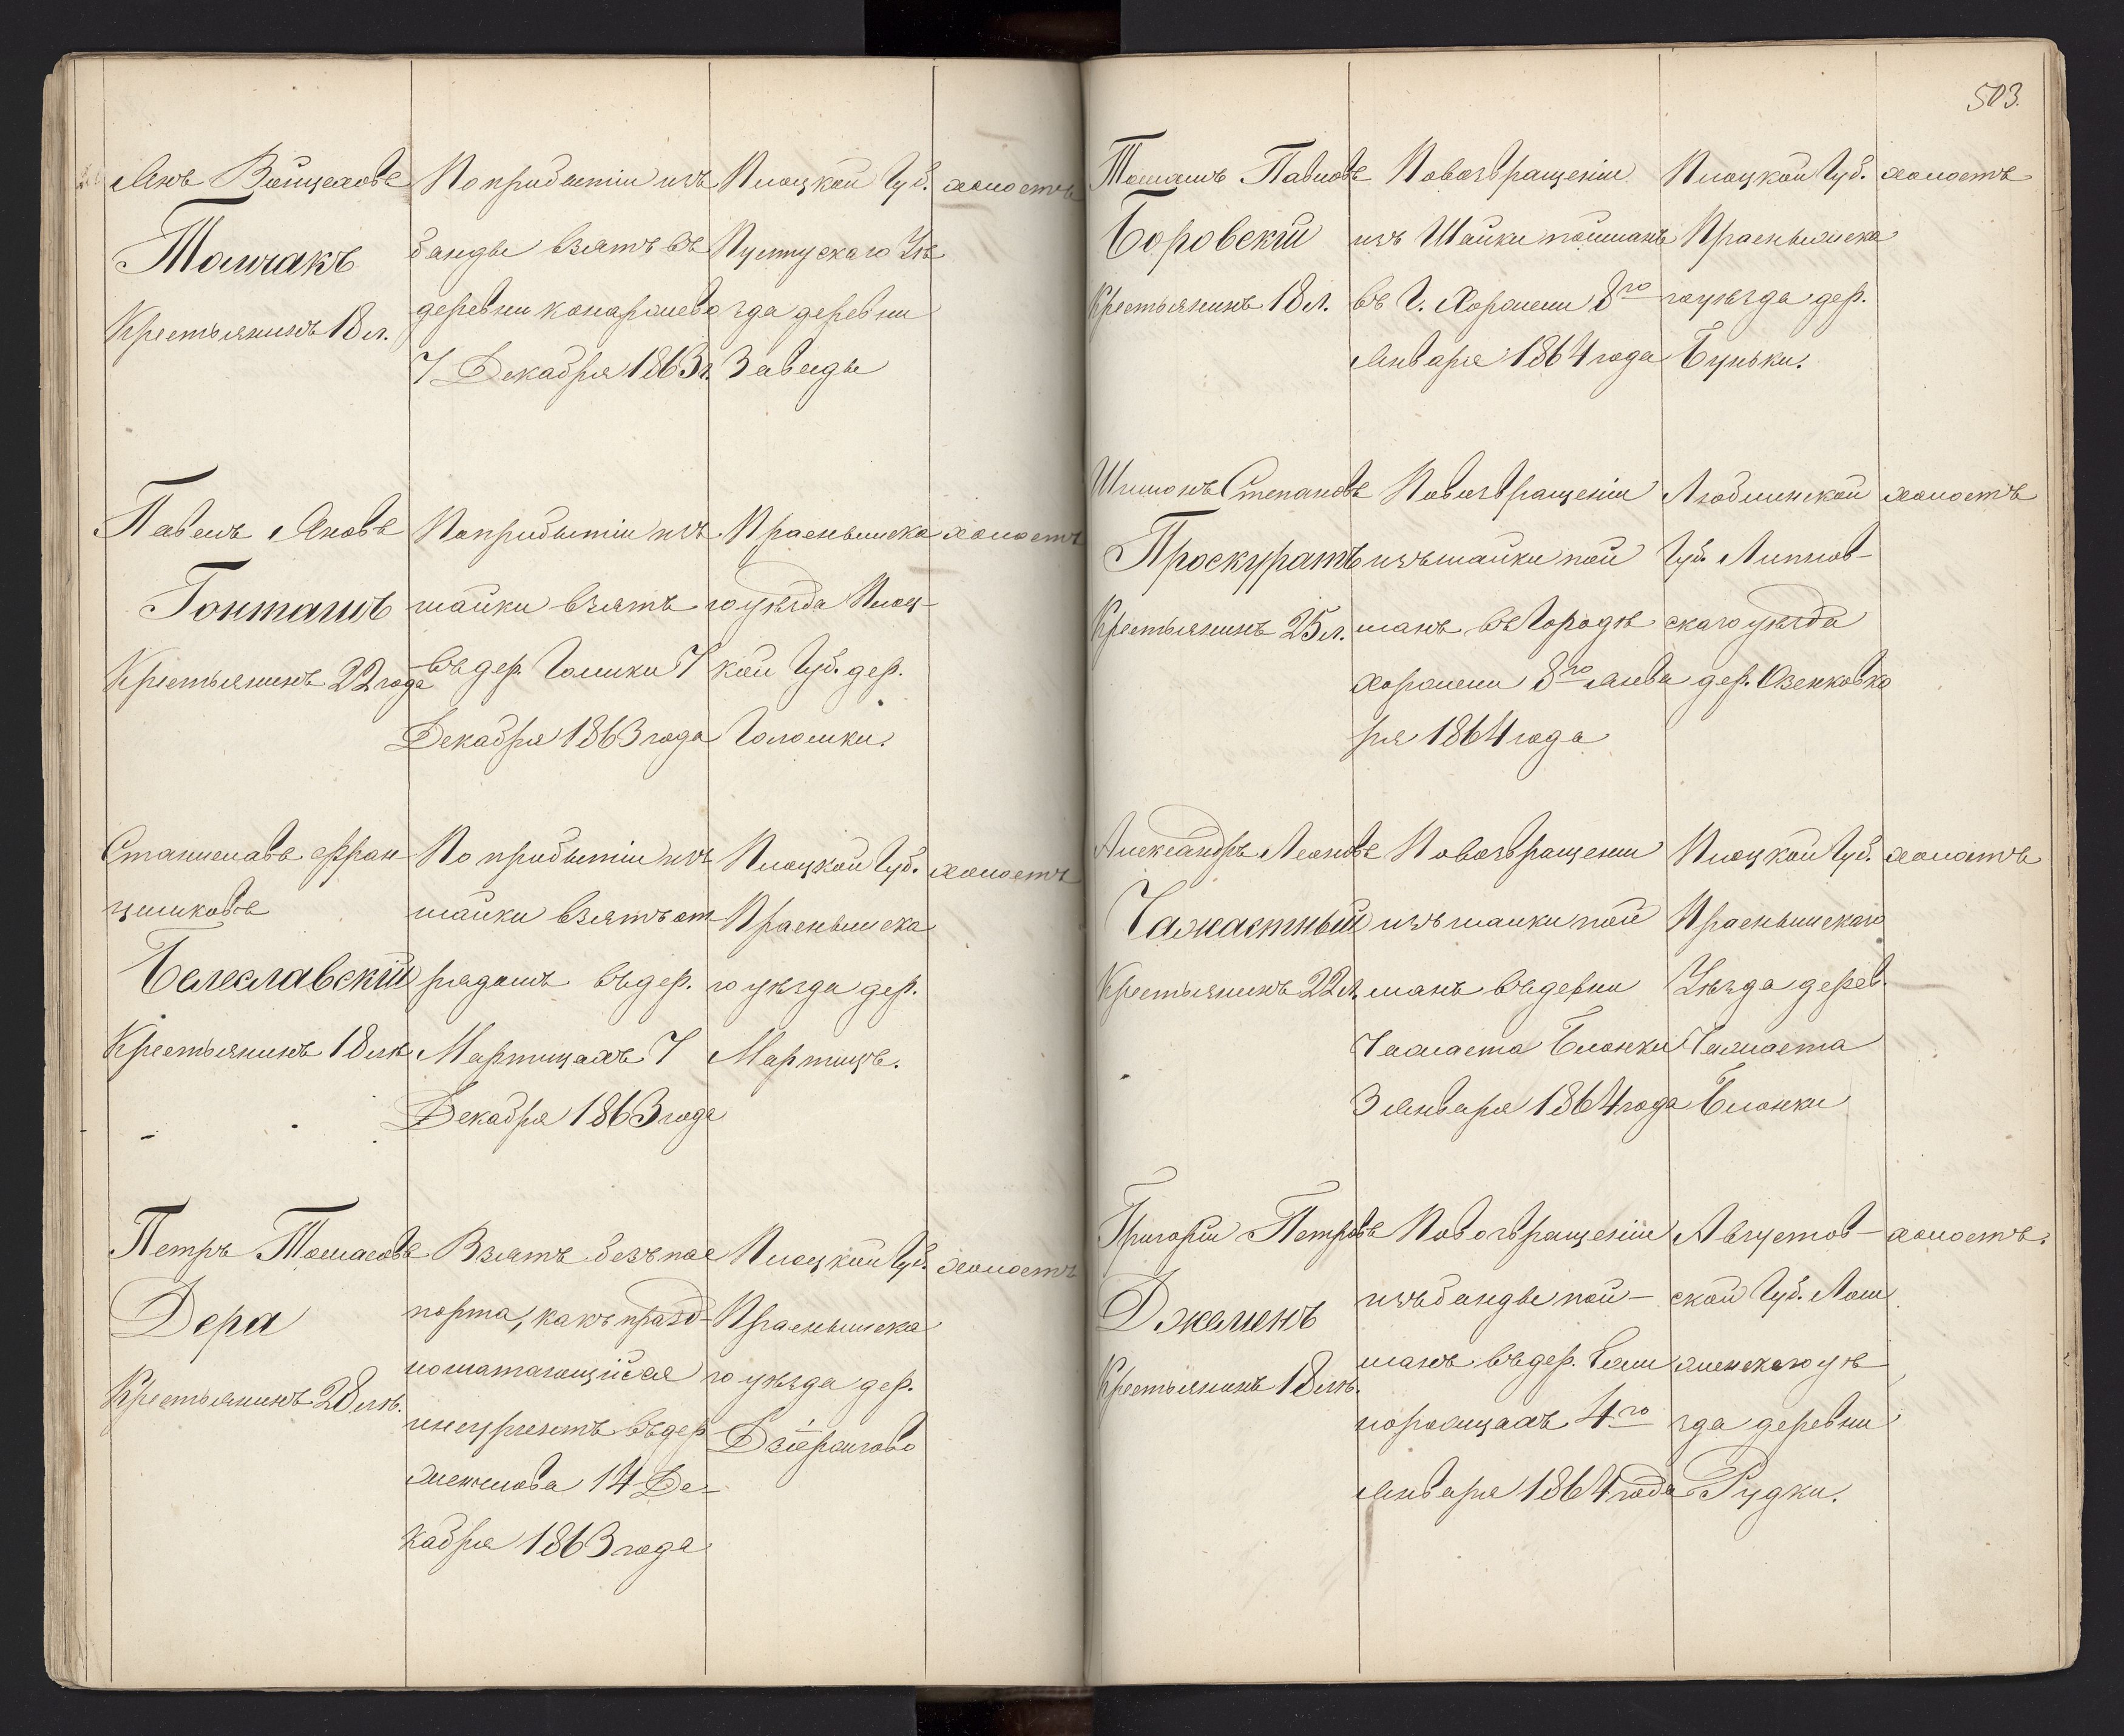 Янъ Войцеховъ
Толчакъ
Крестьянинъ 18 л.
По прибытіи изъ
банды взятъ въ
деревни
7 Декабря 1863 г.
Плоцкой Губ.
Пултускаго Уѣ
зда деревни
Заведы
холостъ
Павелъ Яновъ
Гонташъ
Крестьянинъ 22 года
По прибытіи изъ
шайки взятъ
въ дер. 7
Декабря 1863 года
Праснышска
го уѣзда Плоц-
кой Губ. дер.
холостъ
Станиславъ Фран
цишковъ
Белеславскій
Крестьянинъ 18 лѣ
По прибытіи изъ
шайки взятъ от
рядомъ въ дер.
Мартицахъ 7
Декабря 1863 года
Плоцкой Губ.
Праснышска
го уѣзда дер.
Мартицъ.
холостъ
Петръ Томасовъ
Дера
Крестьянинъ 28 лѣ.
Взятъ безъ пас
порта, какъ празд-
ношатающійся
инсургентъ въ дер
14 Де-
кабря 1863 года
Плоцкой Губ.
Праснышска
го уѣзда дер.
холостъ
503.
Томашъ Павловъ
Боровскій
Крестьянинъ 18 л.
По возвращеніи
изъ Шайки пойманъ
въ Г. Хоржели 8го
Января 1864 года
Плоцкой Губ.
Праснышска
го уѣзда дер.
Буньки.
холостъ
Шимонъ Степановъ
Проскуратъ
Крестьянинъ 25 л.
По возвращеніи
изъ шайки пой
манъ въ Городѣ
Хоржели 8го Янва
ря 1864 года
Люблинской
Губ. Липнов-
скаго уѣзда
дер.
холостъ
Александръ Леоновъ
Чажастный
Крестьянинъ 22 л.
По возвращении
изъ шайки пой
манъ въ девни
Блонки
3 Января 1864 года
Плоцкой Губ.
Праснышскаго
Уѣзда дерев.
Блонки
холостъ
Григорій Петровъ
Джеменъ
Крестьянинъ 18 лѣ.
По возвращеніи
изъ банды пой-
манъ въ дер.
4го
Января 1864 года
Августов-
ской Губ. Лом
жинскаго уѣ
зда деревни
Рудки.
холостъ.